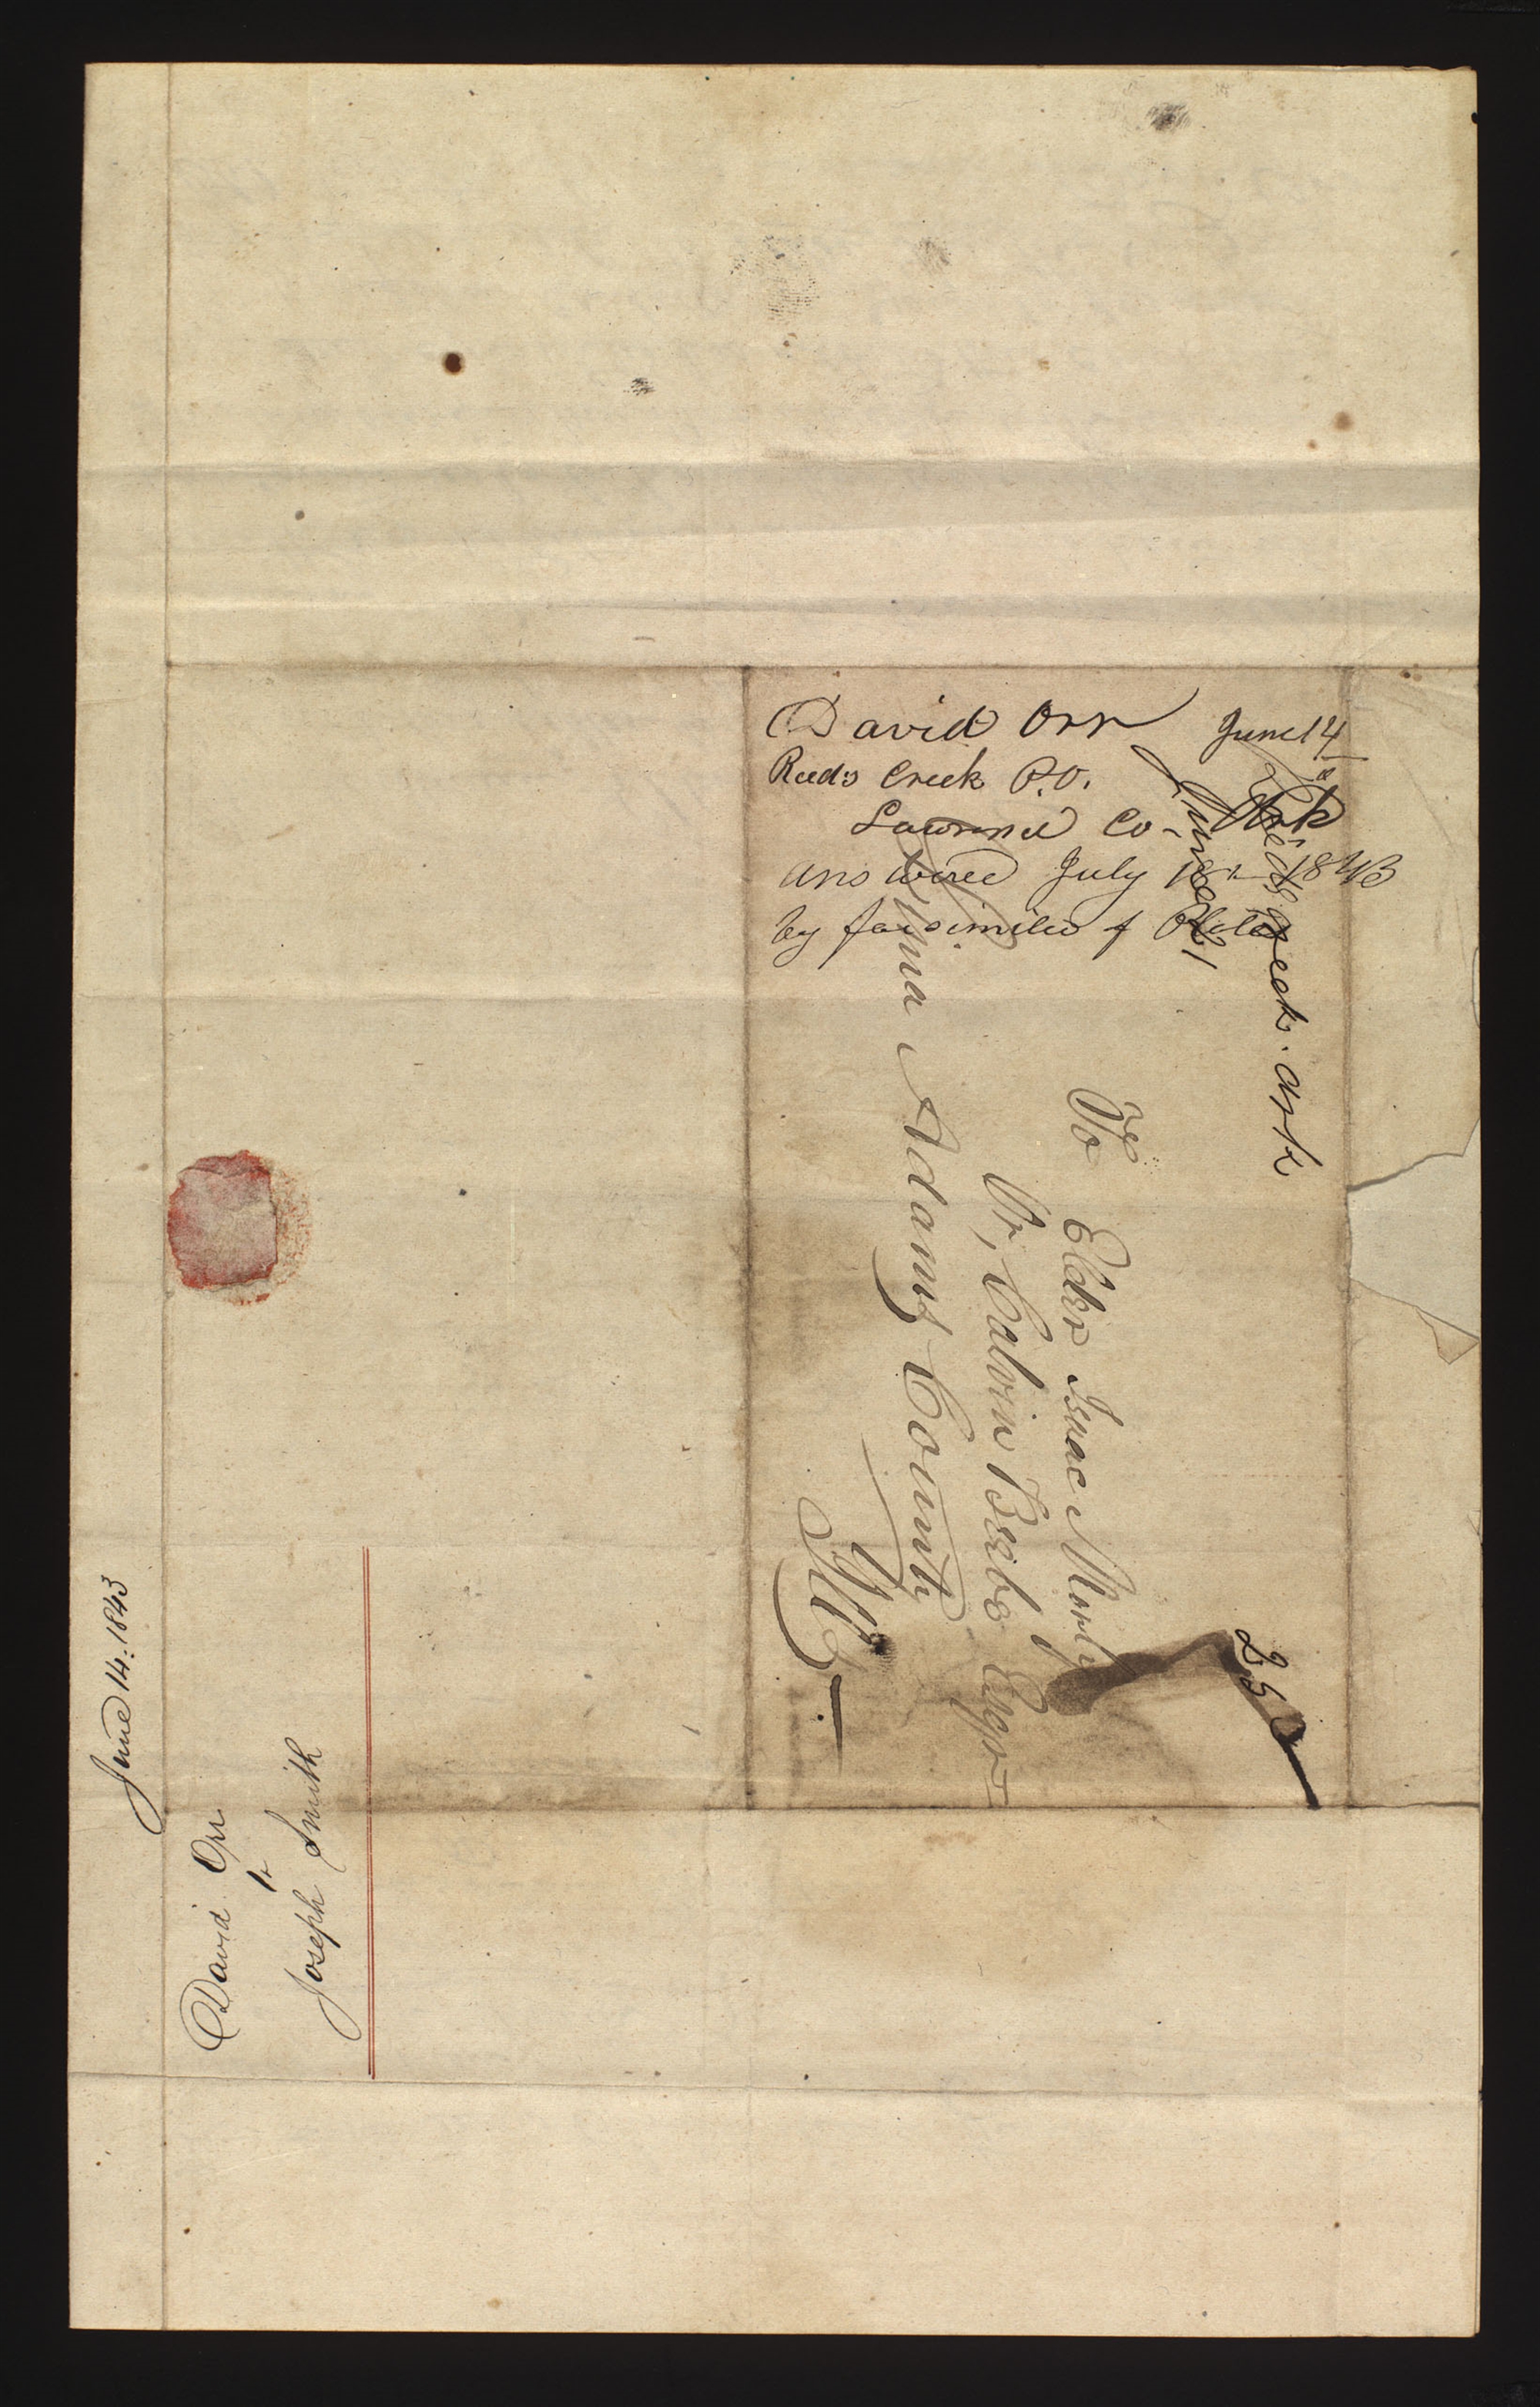 David Orr June 14
Reeds Creek P.O.
Lawrence Co- Ark
answered July 18 1843
by facsimilies of Plates
Reeds Creek. Ark
June 21
25
To Elder Isaac Morly
Or, Calvin Beebe Esqr
Lima Adams County
Ills
June 14. 1843
David Orr
to
Joseph Smith